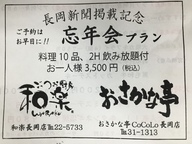 長岡新聞掲載記念
ご予約は
お早目に!!
忘年会プラン
料理10品、2H飲み放題付
お一人様 3,500円（税込）
和楽
おさかな亭
和楽長岡店 ℡22-5733
おさかな亭 CoCoLo 長岡店
℡31-1313